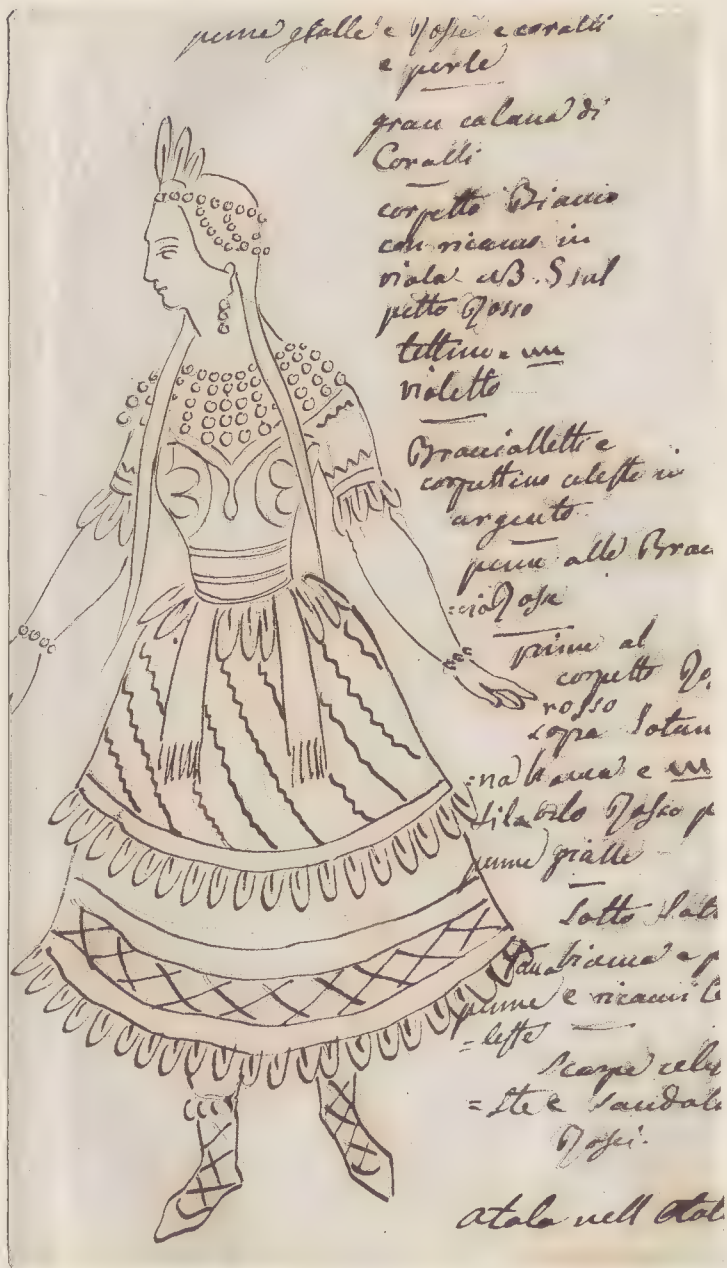 pene gialle e Rosse e coralli
e perle
gran colana di
Coralli
corpetto Bianco
con ricamo in
viola e B. S sul
petto Rosso
violetto
Bracialletti e
corpettino celeste in
argento
pene alle Brac
=cia Rosse
piume al
corpetto Ro
rosso
sopra Sotan
=na bianca e un
filo Rosso p
pene gialle
Sotto Sot
bianca e p
piume e ricami ce
=leste
Scarpe cele
=ste e Sandali
Rossi.
Atala nell Atal